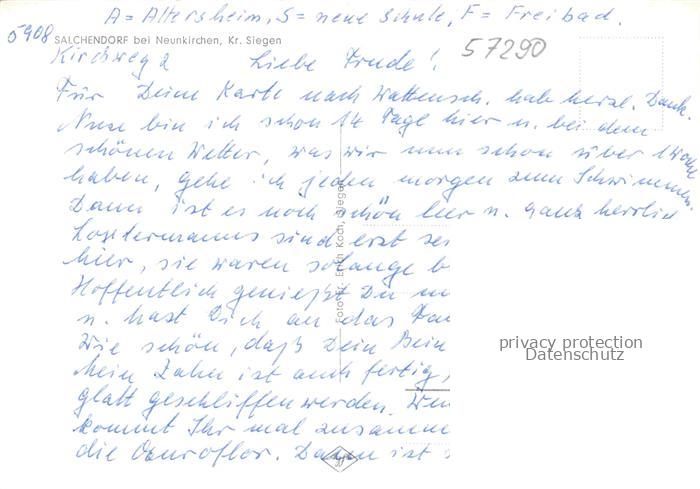 A = Altersheim, S = neue Schule, F = Freibad.
5908 SALCHENDORF bei Neunkirchen, Kr. Siegen
57290
Kirchweg 2 Liebe Trude!
Für Deine Karte nach Wattensch. hab herzl. Dank.
Nun bin ich schon 14 Tage hier u. bei dem
schönen Wetter, was wir nun schon über 1 Woche
haben, gehe ich jeden morgen zum Schwimmen.
Dann ist es noch schön leer u. ganz herrlich
sind erst sei
hier, sie waren solange b
Hoffentlich genießt Du
u. hast Dich an das
Wie schön, daß Dein Bein
Mein Zahn ist auch fertig,
glatt geschliffen werden. Wen
kommt Ihr mal zusamm
die Dann ist
Foto Dr. Erich Koch, Siegen
privacy protection
Datenschutz